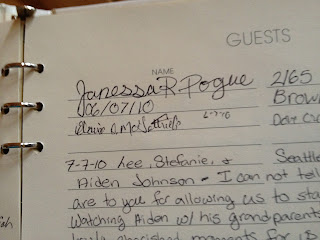 GUESTS
NAME
Janessa R Pogue 2165
06/07/10 Brow
6-7-10
7-7-10 Lee, Stefanie, & Seattl
Aiden Johnson - I can not tell
are to you for allowing us to sta
Watching Aiden w/ his grandparents